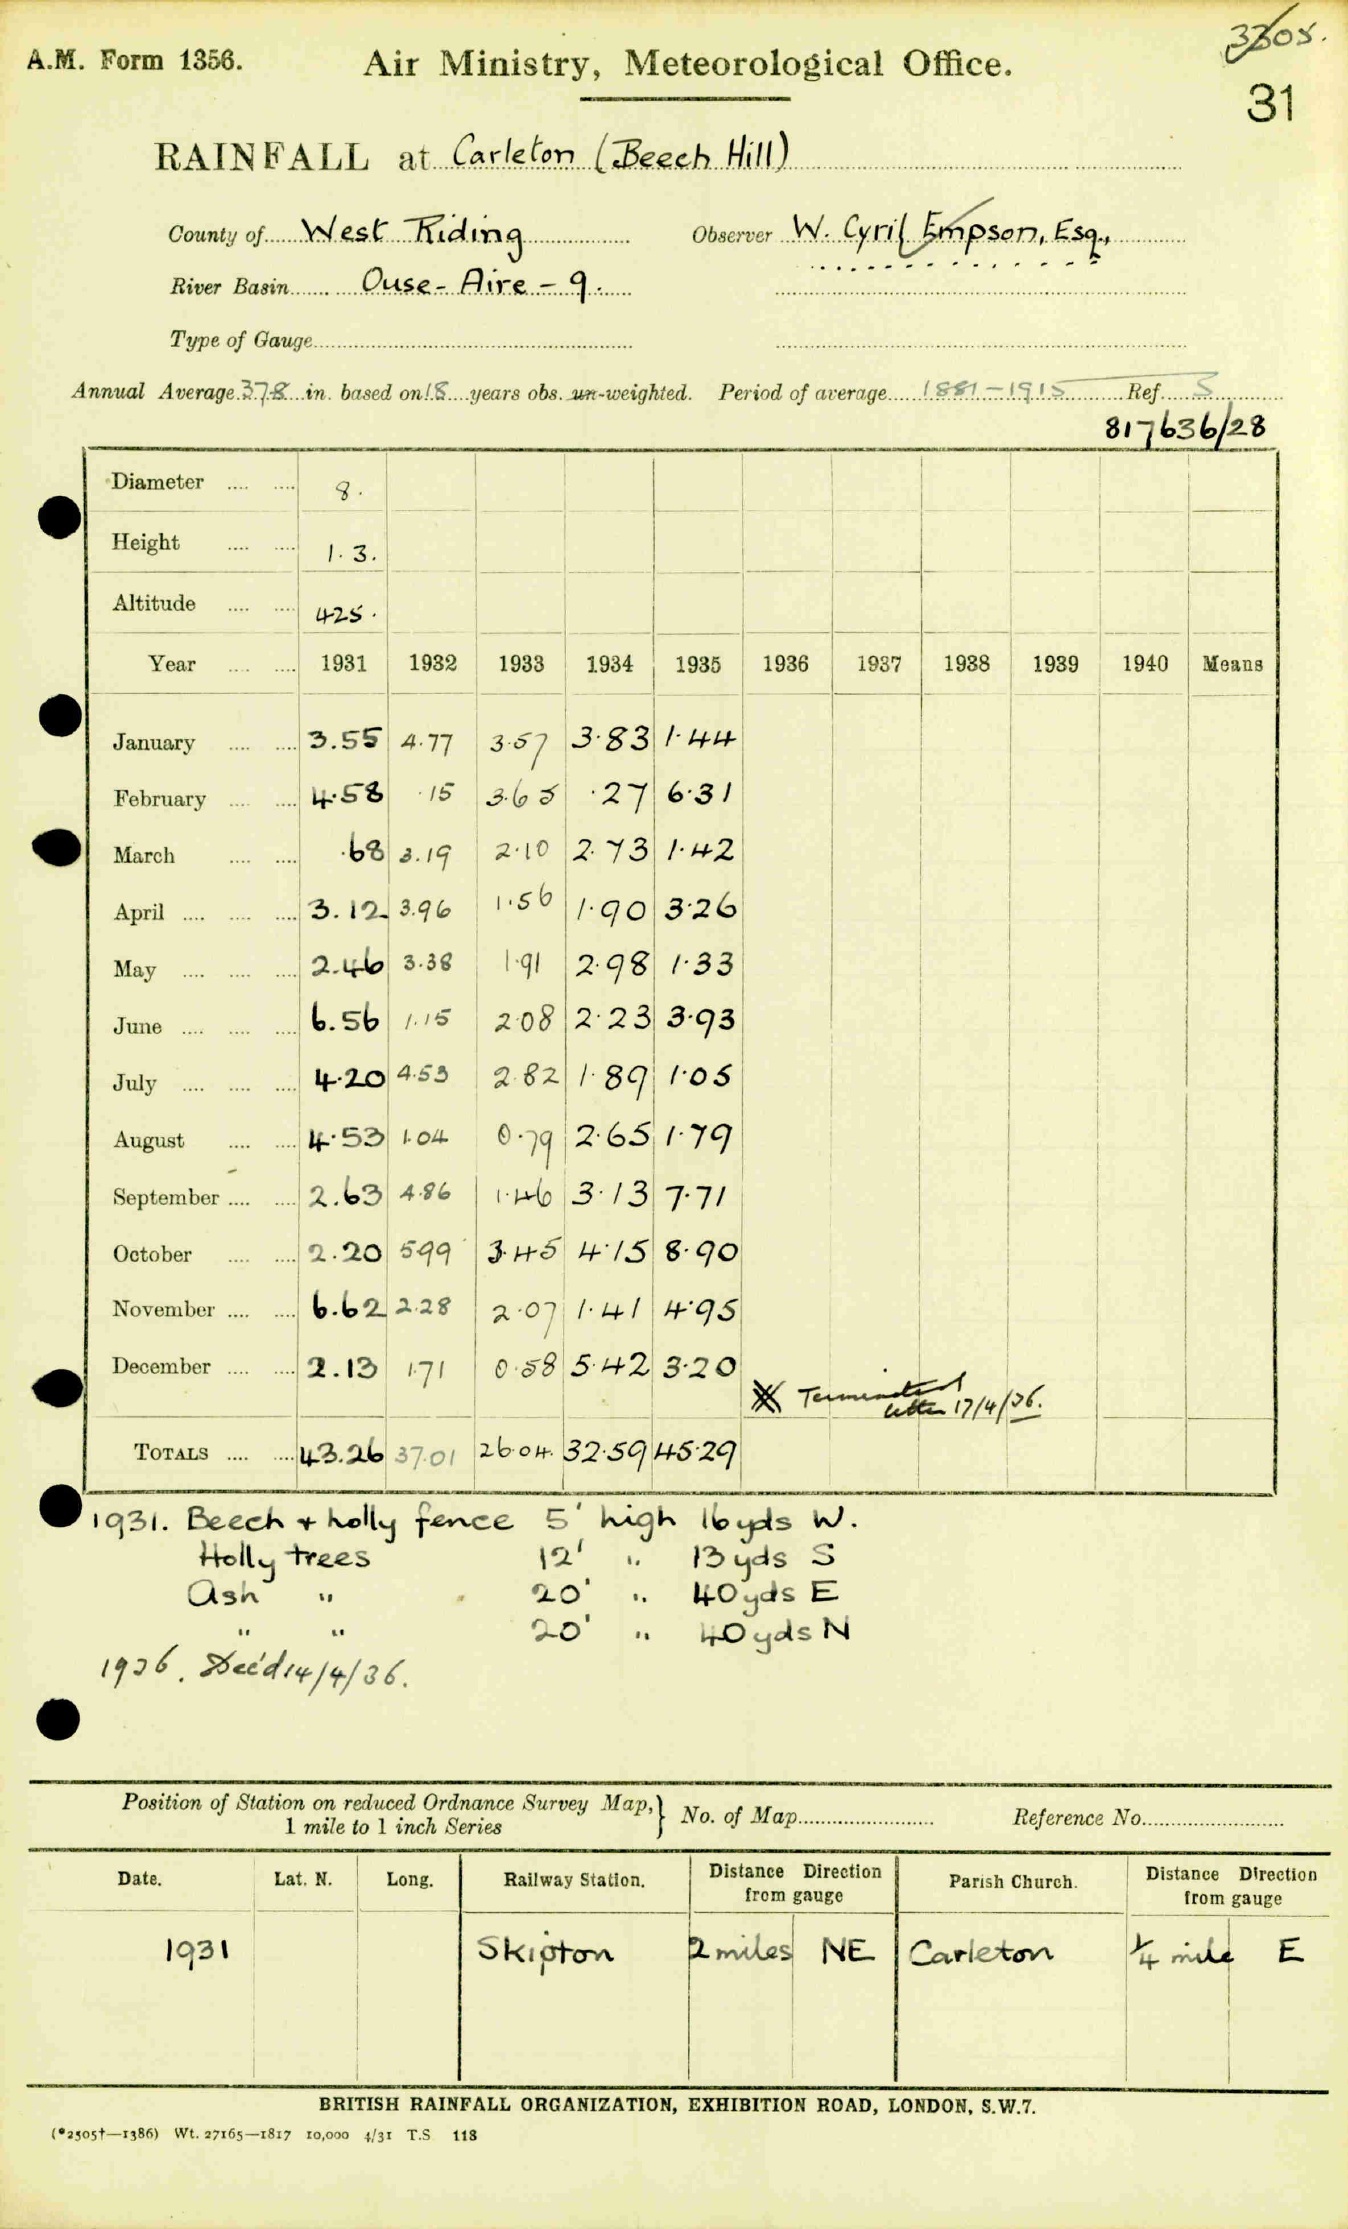 3305.
A.M. Form 1356.
Air Ministry, Meteorological Office.
31
RAINFALL at Carleton (Beech Hill)
County of West Riding Observer W. Cyril Empson, Esq.,
River Basin Ouse - Aire - 9.
Type of Gauge
Annual Average 37.8 in. based on 18 years obs. un-weighted. Period of average 1881-1915 Ref. S
817636/28
Diameter .... .... 8.
Height .... .... 1.3.
Altitude .... .... 425.
Year .... .... 1931 1932 1933 1934 1935 1936 1937 1938 1939 1940 Means
January .... .... 3.55 4.77 3.57 3.83 1.44
February .... .... 4.58 .15 3.65 .27 6.31
March .... .... .68 3.19 2.10 2.73 1.42
April .... .... .... 3.12 3.96 1.56 1.90 3.26
May .... .... .... 2.46 3.38 1.91 2.98 1.33
June .... .... .... 6.56 1.15 2.08 2.23 3.93
July .... .... .... 4.20 4.53 2.82 1.89 1.05
August .... .... 4.53 1.04 0.79 2.65 1.79
September .... .... 2.63 4.86 1.46 3.13 7.71
October .... .... 2.20 5.99 3.45 4.15 8.90
November .... .... 6.62 2.28 2.07 1.41 4.95
December .... .... 2.13 1.71 0.58 5.42 3.20
Terminated
letter 17/4/36.
TOTALS .... .... 43.26 37.01 26.04. 32.59 45.29
1931. Beech + holly fence 5' high 16yds W.
Holly trees 12' " 13yds S
Ash " 20' " 40yds E
" " 20' " 40yds N
1936. Dec'd 14/4/36.
Position of Station on reduced Ordnance Survey Map,} No. of Map Reference No.
1 mile to 1 inch Series
Date. Lat. N. Long. Railway Station. Distance Direction from gauge Parish Church. Distance Direction from gauge
1931 Skipton 2 miles NE Carleton 1/4 mile E
BRITISH RAINFALL ORGANIZATION, EXHIBITION ROAD, LONDON, S.W.7.
(*2505†—1386) Wt. 27165—1817 10,000 4/31 T.S 113